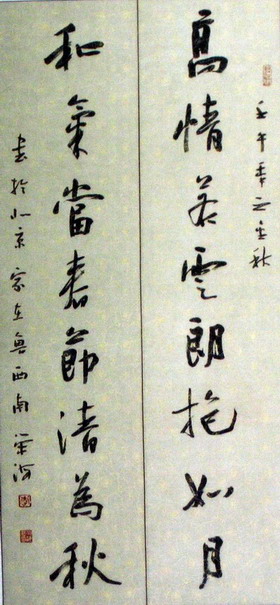 壬午年之金秋
高情若雲朗抱如月
和氣當春節清為秋
書於北京家在魯西南